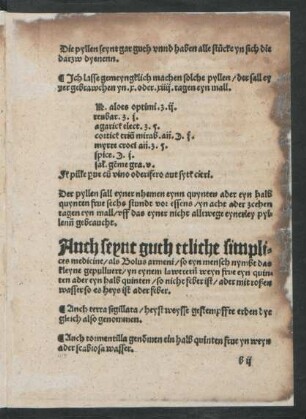 Die pyllen seynt gar guch vnnd haben alle stücke yn sich die
darzw dyenenn.
¶ Ich lasse gemeyngklich machen solche pyllen / der sall ey
ner gebrawchen yn .x. oder .xiiij. tagen eyn mall.
℞. aloes optimi .ʒ. ij.
reubar. ʒ. j.
agarici elect. ʒ. s.
cortici
myrre croci añ. ʒ. s.
spice. ℈. j.
sal. gēme gra. v.
Ft pille cū vino odorifero aut syrk citri.
Der pyllen sall eyner nhemen eynn quynten ader eyn halb
quynten frue sechs stunde vor essens / yn acht ader zcehen
tagen eyn mall / vff das eyner nicht allwege eynerley pyl
lenn gebraucht.
Auch seynt guch etliche simpli-
ces medicine / als Bolus armeni / so eyn mensch nymbt das
kleyne gepulluert / yn eynem lawterm weyn frue eyn quin-
ten ader eyn halb quinten / so nicht feber ist / aber mit rosen
wasser so es heys ist ader feber.
¶ Auch terra sigillata / heyst weysse gestempffte erden dye
gleich also genommen.
¶ Auch tormentilla genhmen ein halb quinten frue yn weyn
ader scabiosa wasser.
b ij